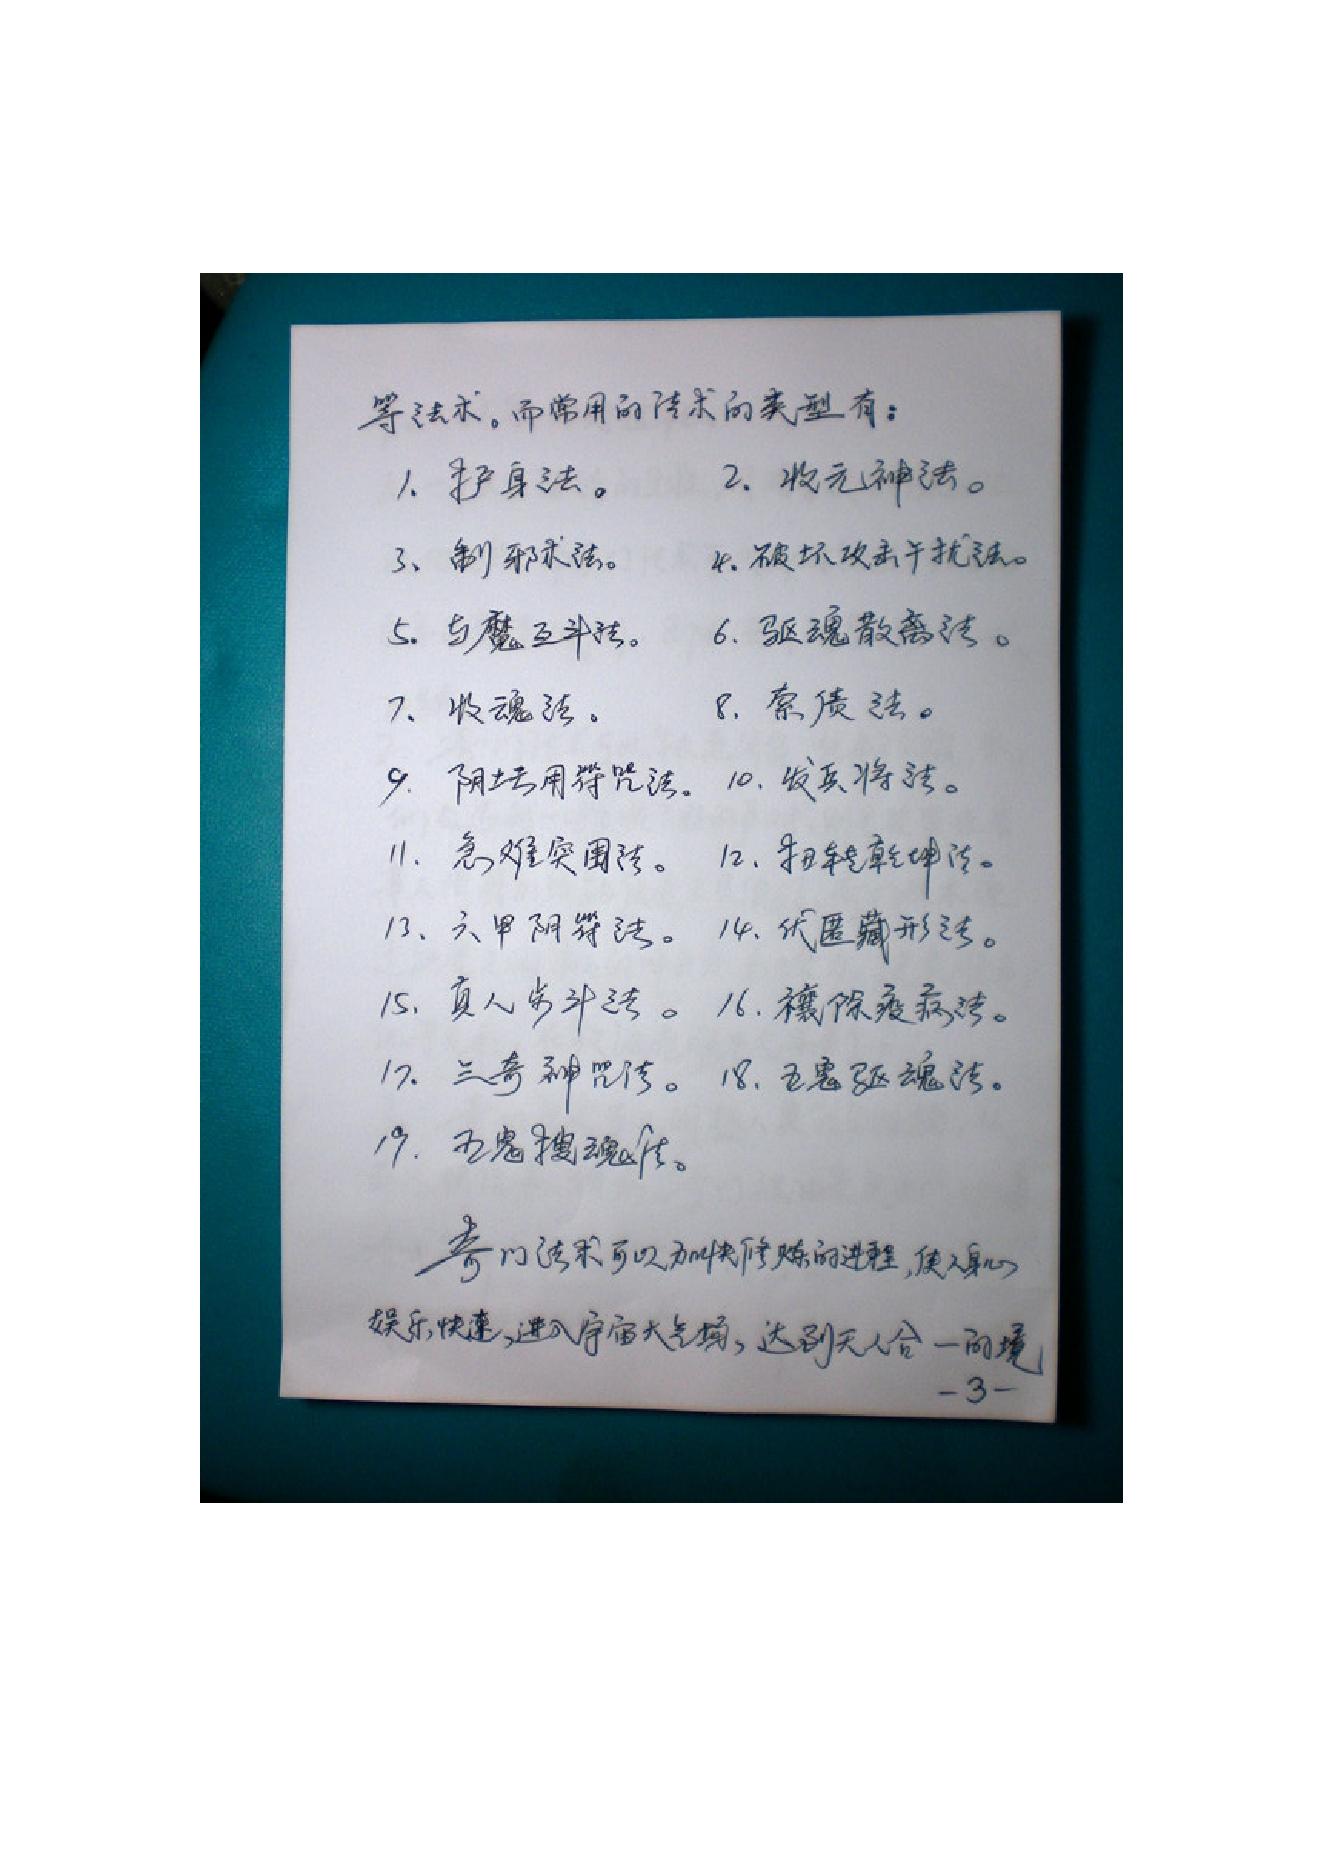 等法术。而常用的法术的类型有：
1、护身法。 2、收元神法。
3、制邪术法。 4、破坏攻击干扰法。
5、与魔互斗法。 6、驱魂散离法。
7、收魂法。 8、索债法。
9、阴坛用符咒法。 10、发兵将法。
11、急难突围法。 12、扭转乾坤法。
13、六甲阴符法。 14、伏匿藏形法。
15、真人步斗法。 16、禳除疫病法。
17、三奇神咒法。 18、五鬼驱魂法。
19、五鬼搜魂法。
奇门法术可以加快修炼的进程，使人身心
娱乐，快速，进入宇宙大气场，达到天人合一的境
-3-